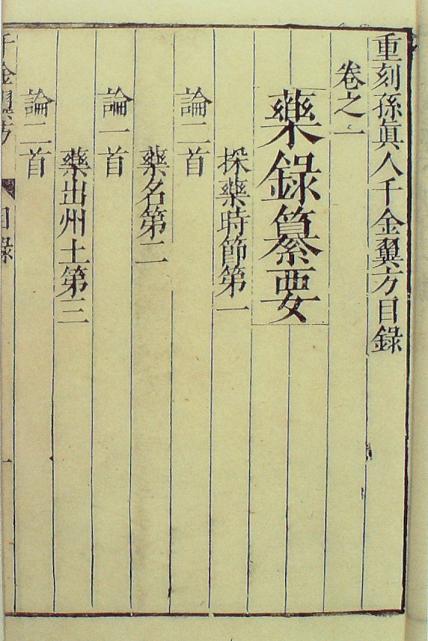 重刻孫眞人千金翼方目錄
卷之一
藥錄纂要
採藥時節第一
論二首
藥名第二
論一首
藥出州土第三
論二首
千金翼方 目錄 一